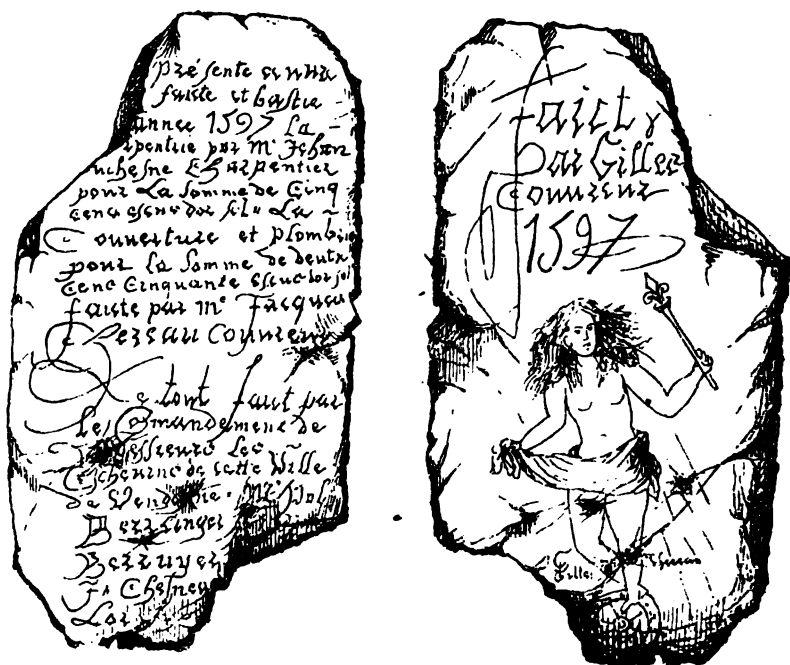 présente œuvre
faicte et bastie
année 1597 La
rpentrie par Mᵉ Jehan
uchesne Charpentier
pour La somme de Cinq
Cens escus dor sol. La
Couuerture et plombe
pour la somme de deulx
Cens Cinquante escus dor sol
faicte par Mᵉ Jacques
Persau Couureur
Le tout faict par
le Commandement de
Messieurs Les
Escheuins de cette Ville
de Vendosme. Mᵉ
Berruyer
Chesneau
Lor
Faict
Par Gilles
Couureur
1597
Gilles